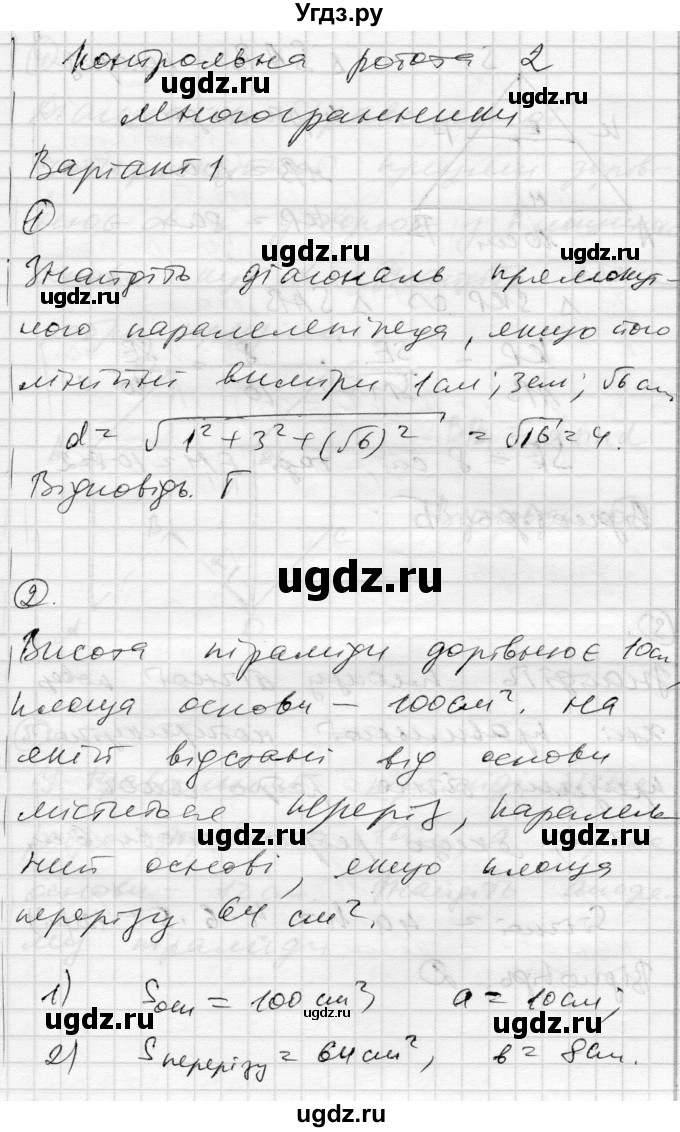 Угдз.ру
Контрольна робота 2
Многогранники
Варіант 1
①
Знайдіть діагональ прямокут-
ного паралелепіпеда, якщо його
лінійні виміри 1 см; 3 см; √6 см
d = √1² + 3² + (√6)² = √16 = 4.
Відповідь. Г
②.
Висота піраміди дорівнює 10 см,
площа основи – 100 см². На
якій відстані від основи
міститься переріз, паралель-
ний основі, якщо площа
перерізу 64 см².
1) Sосн = 100 см²; a = 10 см;
2) Sперерізу = 64 см², в = 8 см.
ugdz.ru